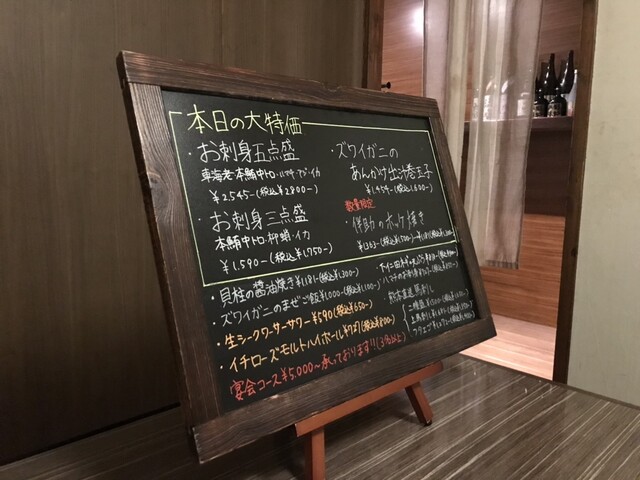 本日の大特価
・お刺身五点盛
車海老・本鮪中トロ・ハマチ・アジ・イカ
¥2,545-(税込¥2800-)
・お刺身三点盛
本鮪中トロ・柳蛸・イカ
¥1,590-(税込¥1,750-)
・ズワイガニの
あんかけ出汁巻玉子
¥1,454-(税込1,600-)
数量限定
・伴助のホッケ焼き
・貝柱の醤油焼き¥1,181-(税込¥1,300-)
・ズワイガニのまぜご飯¥1,000-(税込¥1,100-)
・生シークワーサーサワー¥590(税込¥650-)
・イチローズモルトハイボール¥727(税込¥800-)
宴会コース¥5,000〜承っております!!(3名以上)
・熊本直送馬刺し